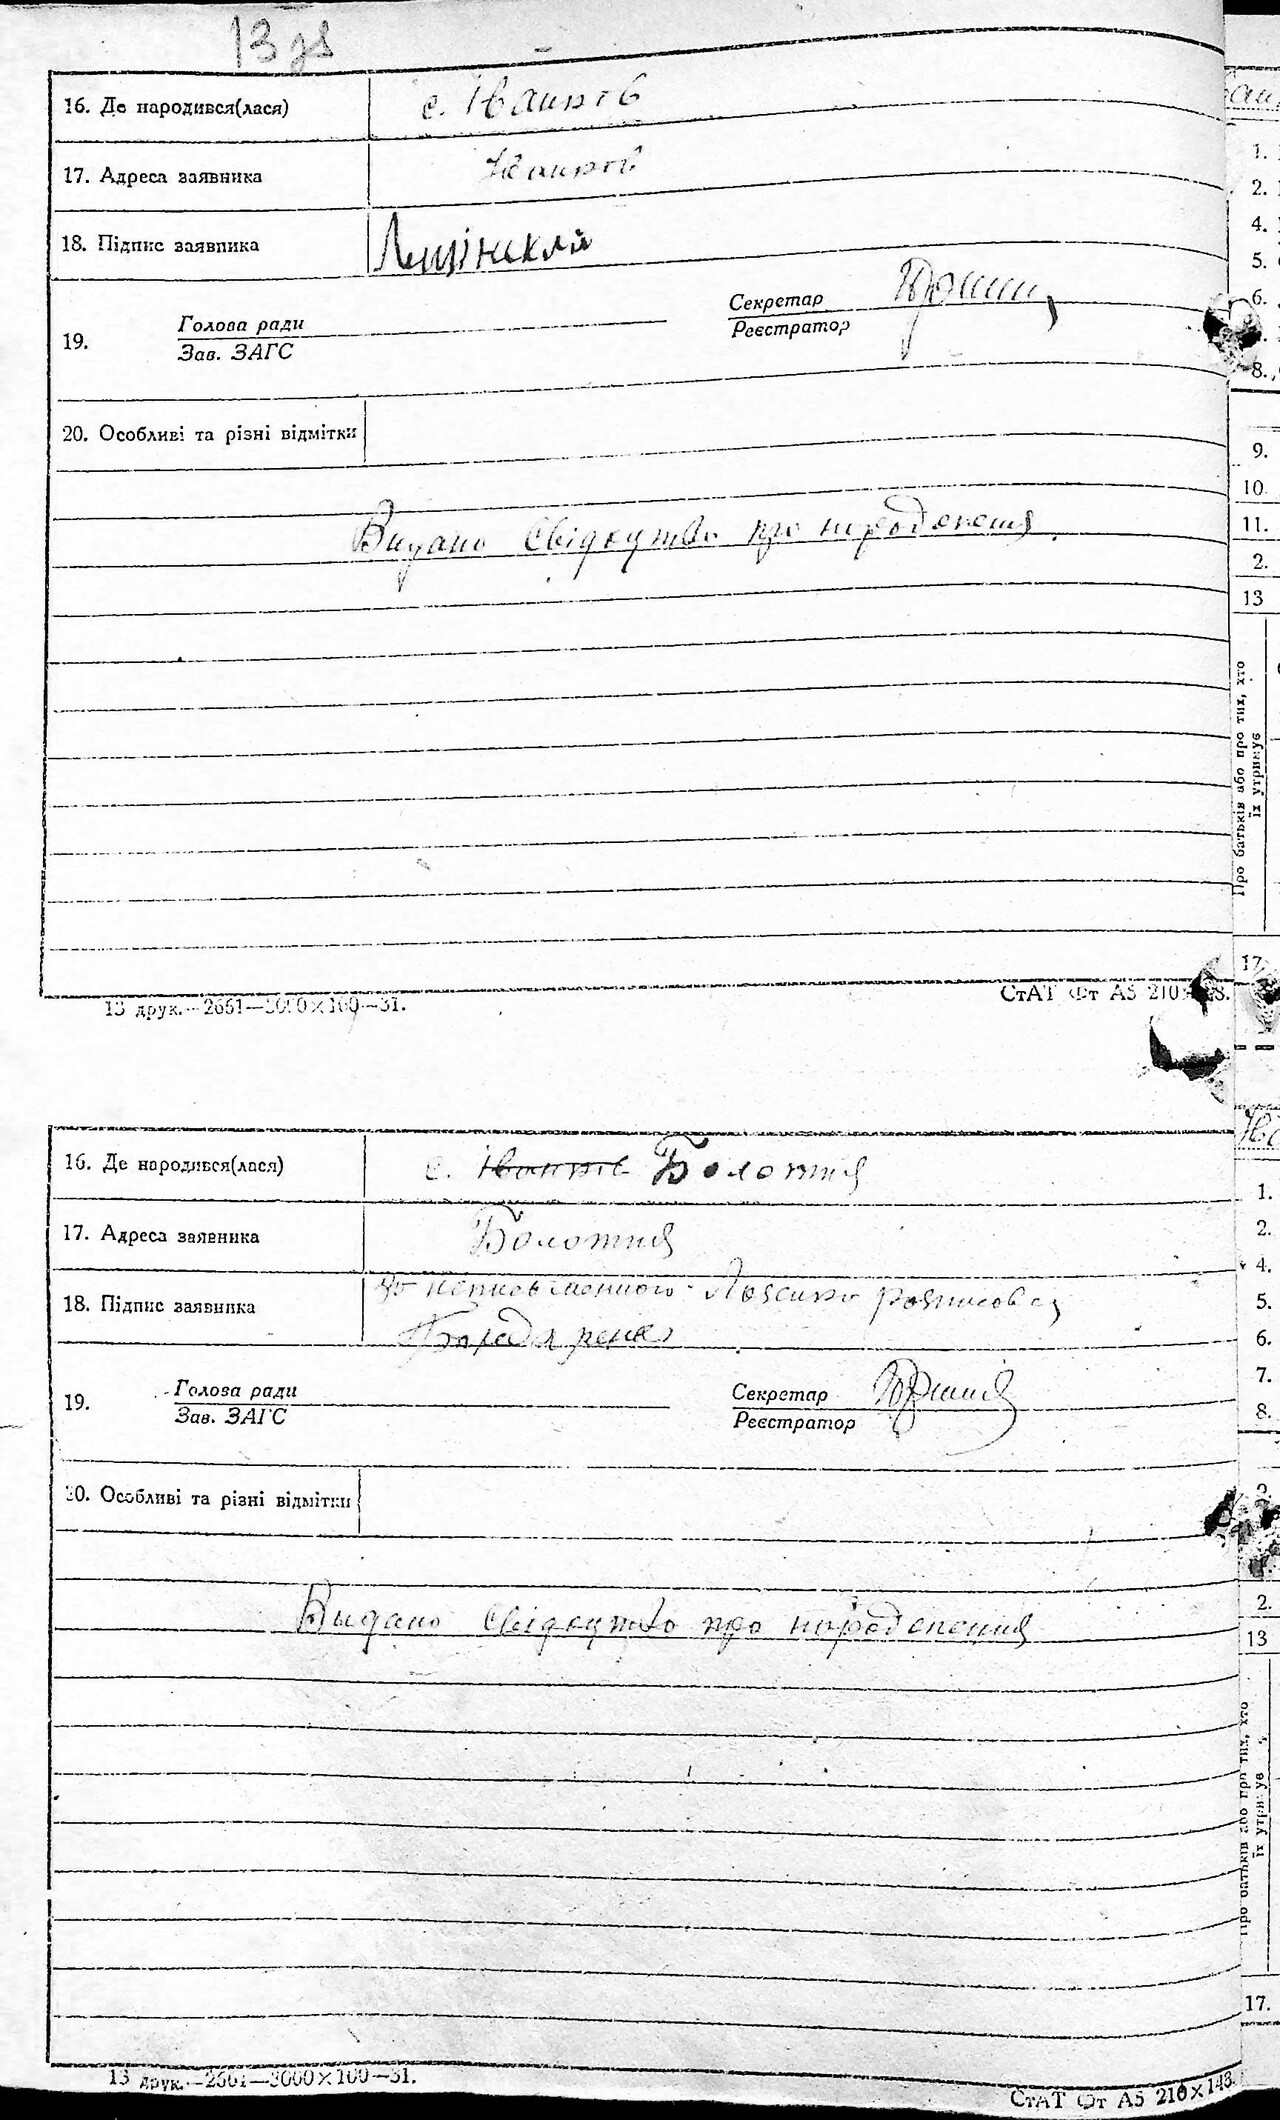 13 зв
16. Де народився(лася) с. Іванків
17. Адреса заявника Іванків
18. Підпис заявника
19. Голова ради Секретар
Зав. ЗАГС Реєстратор
20. Особливі та різні відмітки
Видано свідоцтво про народження
13 друк.—2661—3000×100—31. СтАТ Фт А5 210×148.
16. Де народився(лася) с. Іванків Болотня
17. Адреса заявника Болотня
18. Підпис заявника за неписьменного розписався
19. Голова ради Секретар
Зав. ЗАГС Реєстратор
20. Особливі та різні відмітки
Видано свідоцтво про народження
13 друк.—2661—3000×100—31.
СтАТ Фт А5 210×148.
1.
2.
4.
5.
6.
8.
9.
10
11.
2.
13
Про батьків або про тих, хто
їх утримує
17
1.
2.
4.
5.
6.
7.
8.
2.
13
Про батьків або про тих, хто
їх утримує
17.